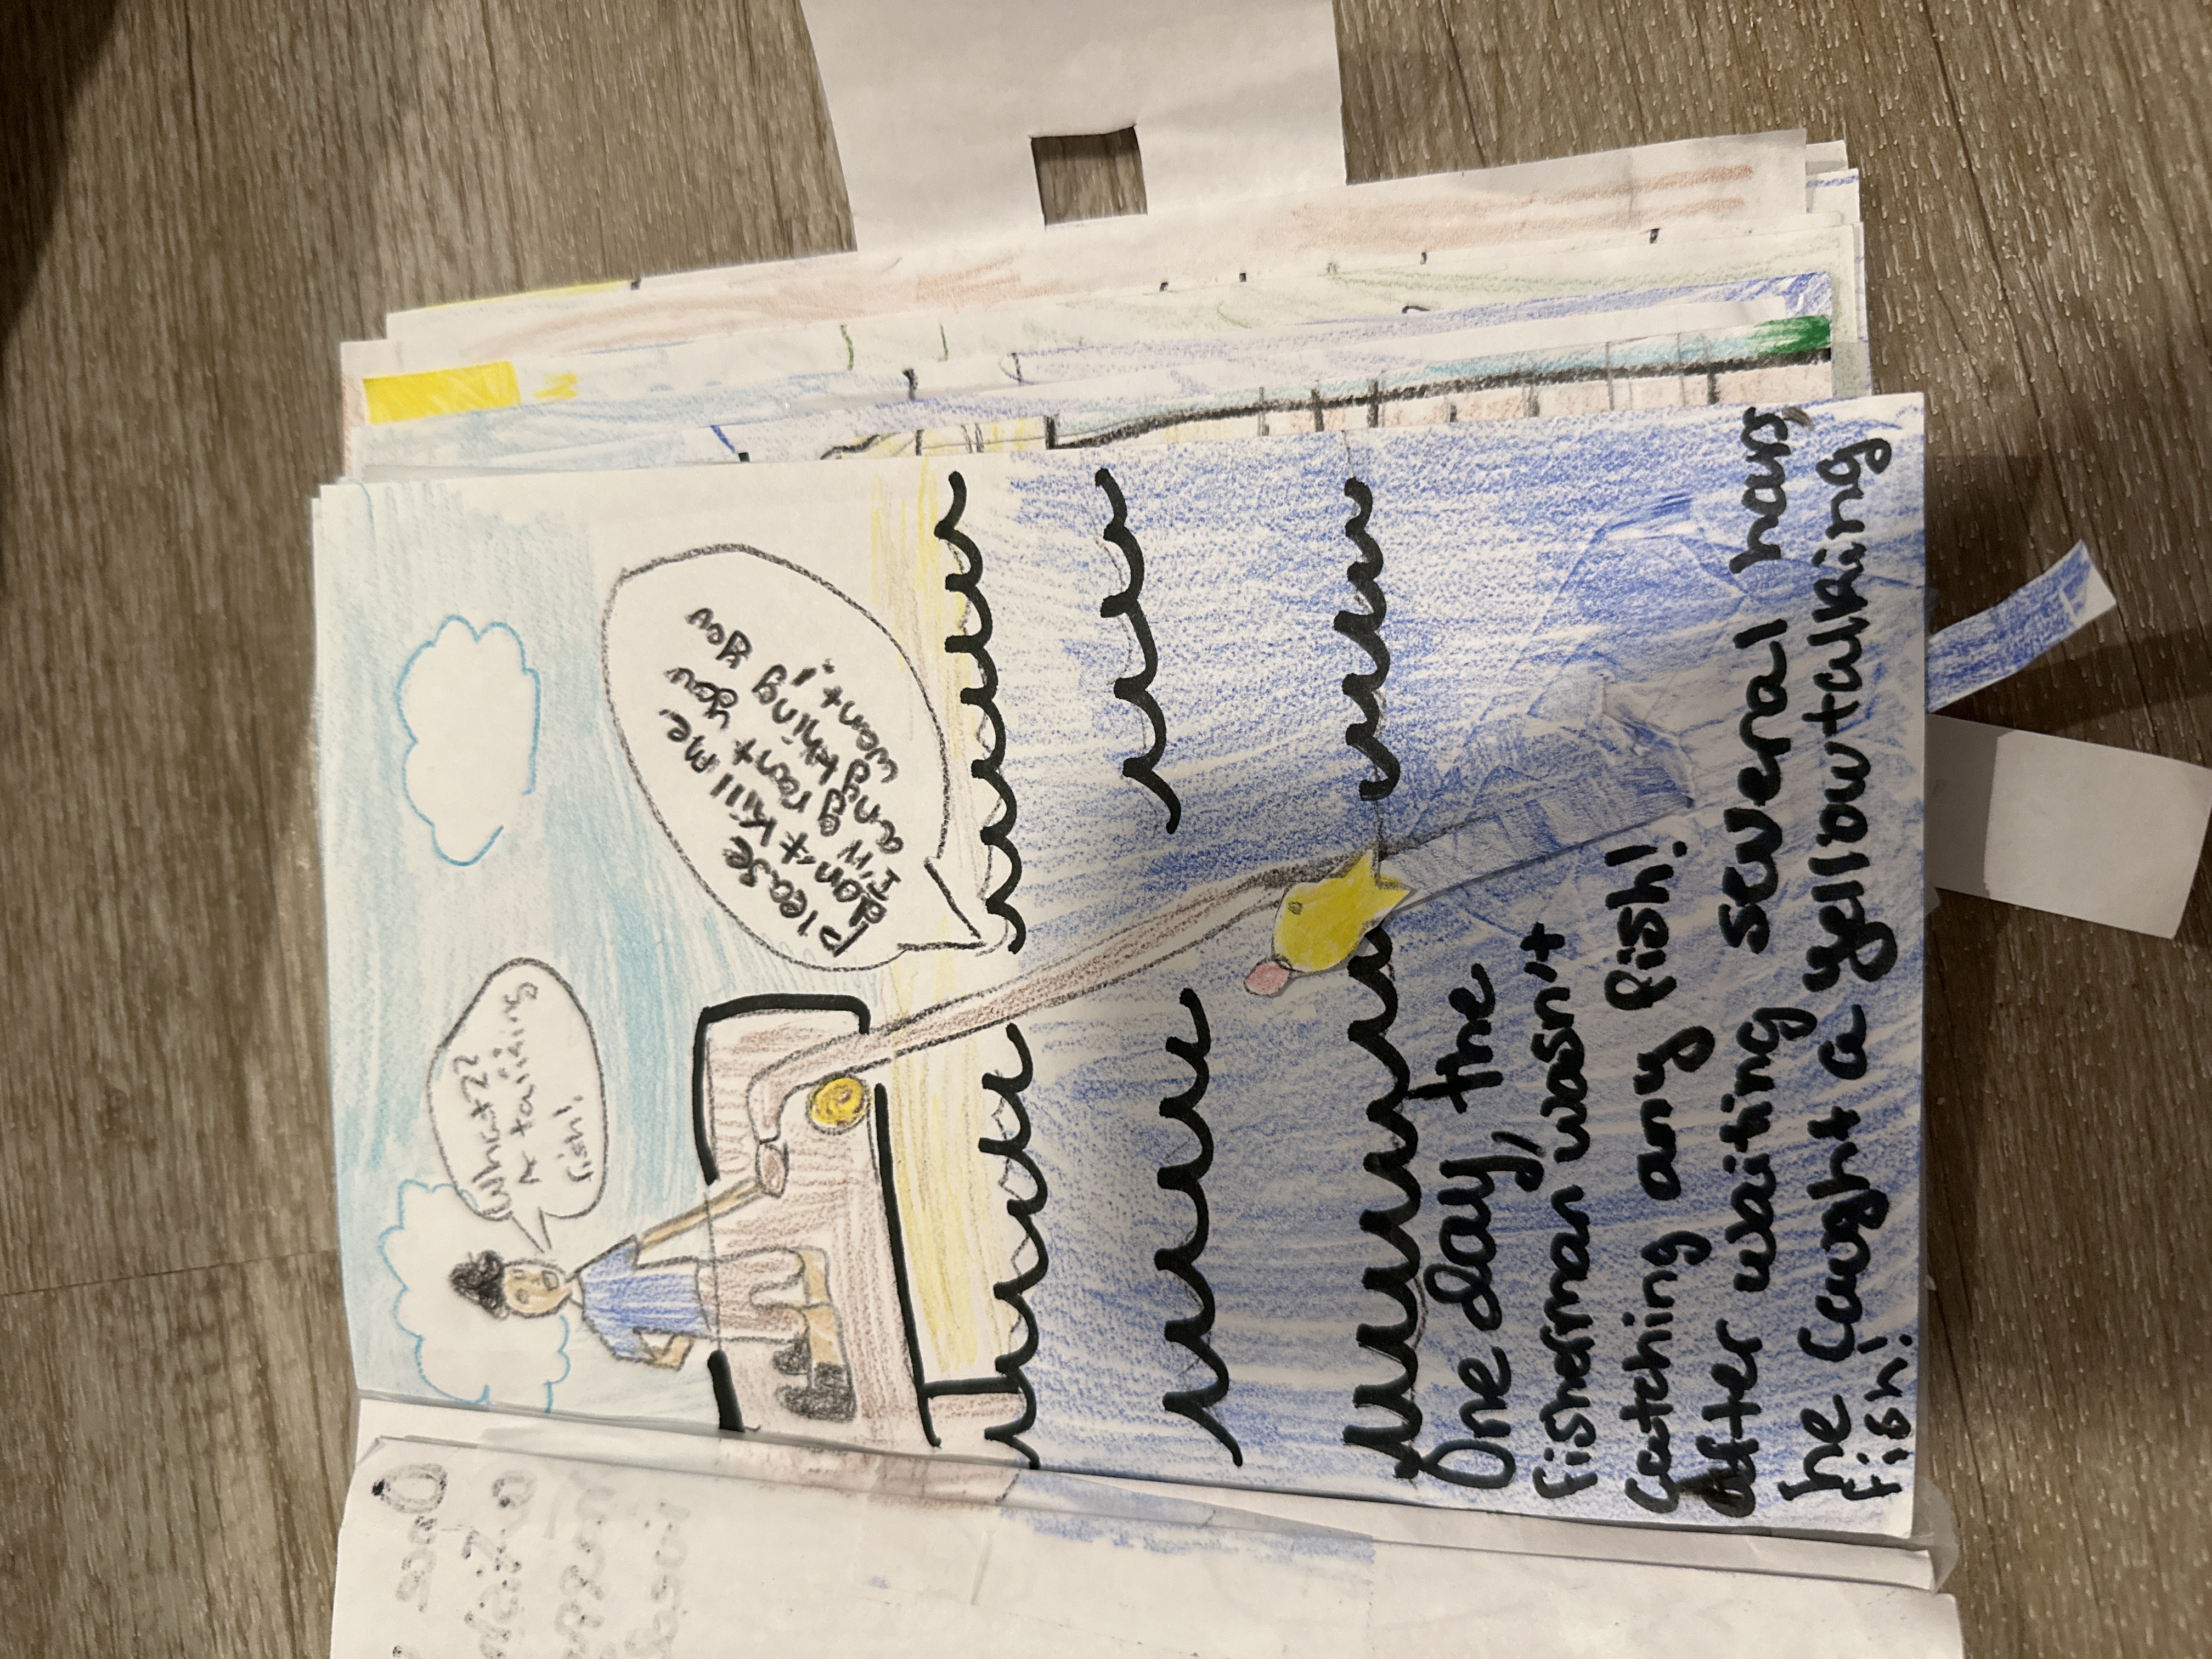 Once
What??
A talking
fish!
please
don't kill me
I'll grant you
anything you
want!
One day, the
fisherman wasn't
catching any fish!
After waiting several hours,
he caught a yellow talking
fish!